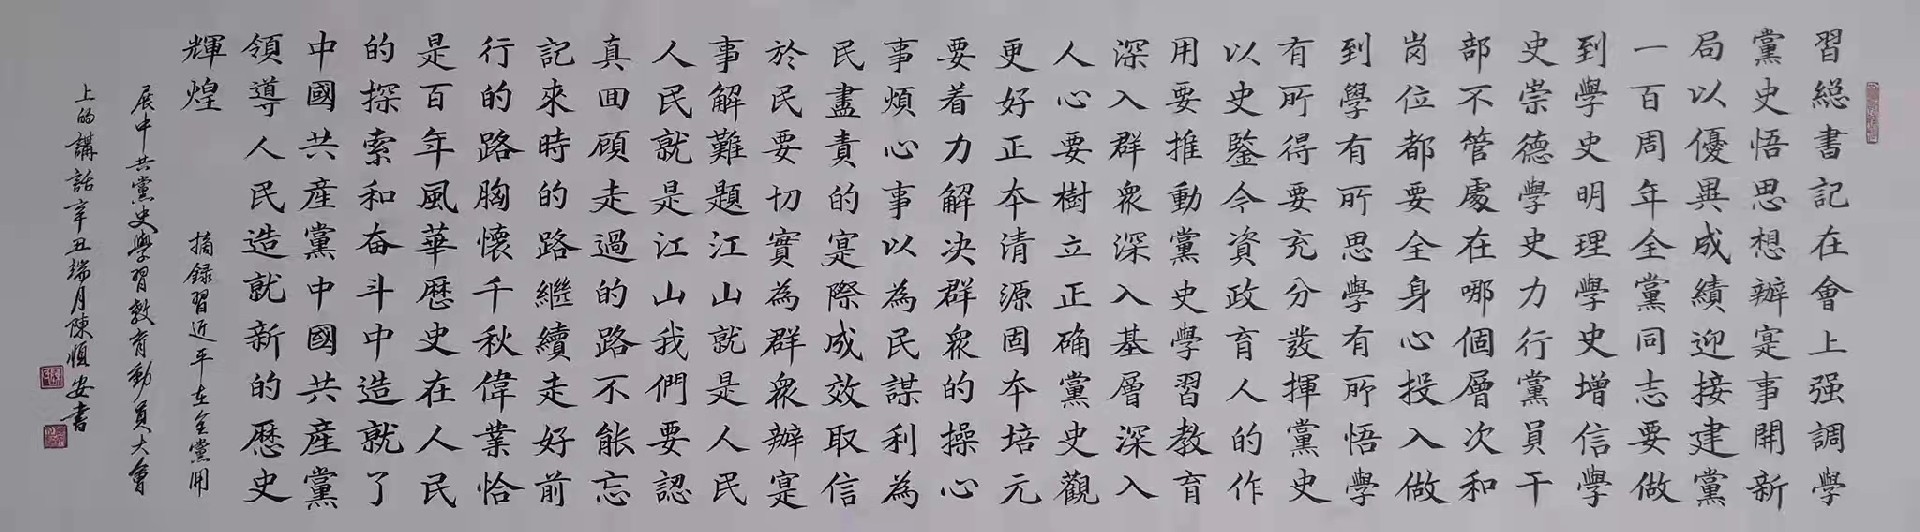 習総書記在會上强調學
黨史悟思想辦寔事開新
局以優異成績迎接建黨
一百周年全黨同志要做
到學史明理學史增信學
史崇德學史力行黨員干
部不管處在哪個層次和
崗位都要全身心投入做
到學有所思學有所悟學
有所得要充分發揮黨史
以史鑒今資政育人的作
用要推動黨史學習教育
深入群衆深入基層深入
人心要樹立正确黨史觀
更好正本清源固本培元
要着力解决群衆的操心
事煩心事以為民謀利為
民盡責的寔際成效取信
於民要切實為群衆辦寔
事解難題江山就是人民
人民就是江山我們要認
真回顧走過的路不能忘
記來時的路繼續走好前
行的路胸懷千秋偉業恰
是百年風華歷史在人民
的探索和奋斗中造就了
中國共産黨中國共産黨
領導人民造就新的歷史
輝煌
摘録習近平在全黨開
展中共黨史學習教育動員大會
上的講話辛丑端月陳順安書